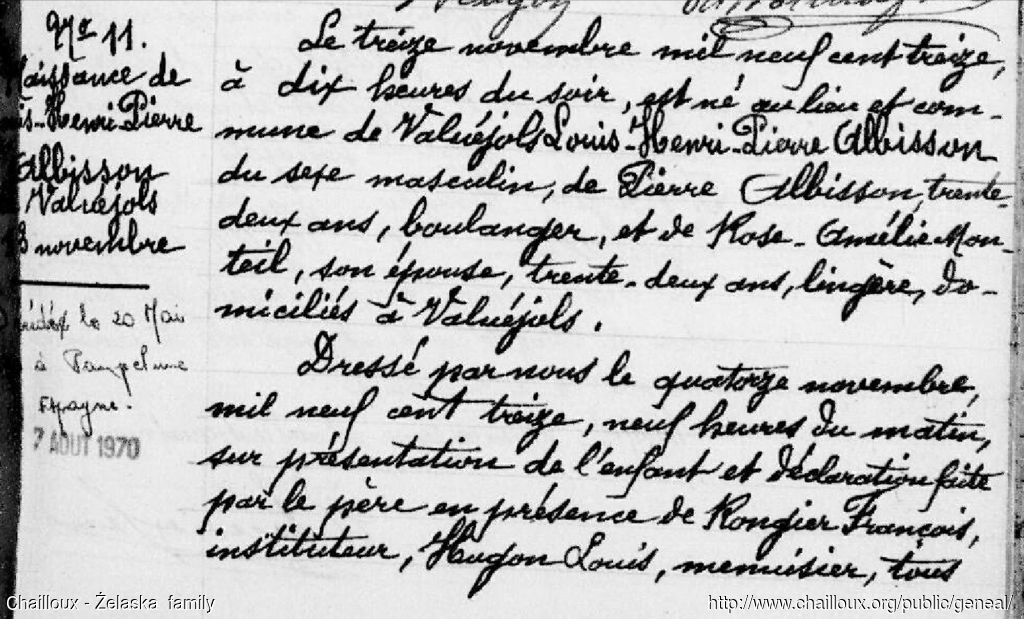 No 11.
Naissance de
is-Henri-Pierre
Albisson
Valuéjols
3 novembre
le 20 Mai
à Pampelune
Espagne.
7 AOUT 1970
Le treize novembre mil neuf cent treize,
à dix heures du soir, est né au lieu et com-
mune de Valuéjols Louis-Henri-Pierre Albisson
du sexe masculin, de Pierre Albisson, trente-
deux ans, boulanger, et de Rose-Amélie Mon-
teil, son épouse, trente-deux ans, lingère, do-
miciliés à Valuéjols.
Dressé par nous le quatorze novembre,
mil neuf cent treize, neuf heures du matin,
sur présentation de l'enfant et déclaration faite
par le père en présence de Rongier François,
instituteur, Hugon Louis, menuisier, tous
Chailloux - Żelaska family
http://www.chailloux.org/public/geneal/